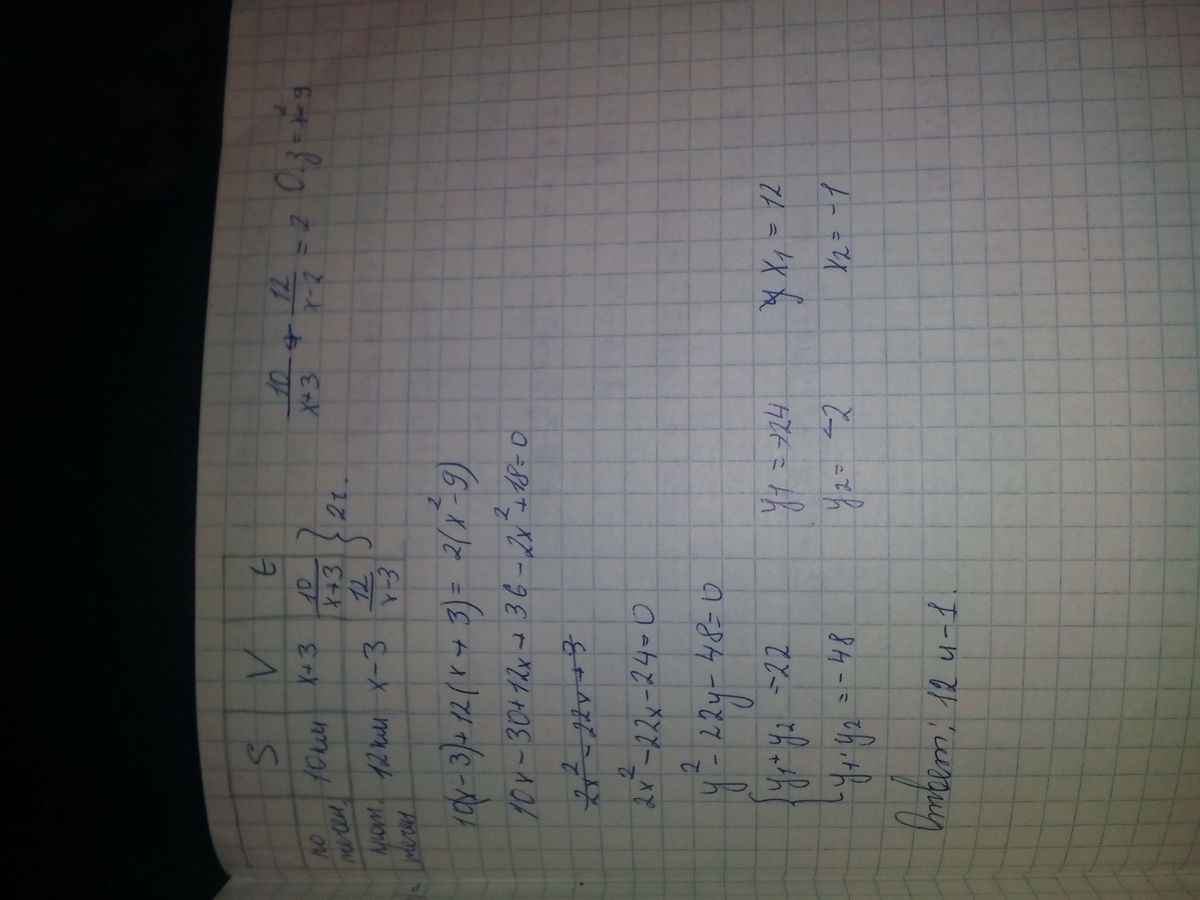 S V t
по течен. 10 км x+3 10/(x+3) } 2ч.
прот. течен 12 км x-3 12/(x-3)
10/(x+3) + 12/(x-2) = 2 О.З = x²-9
10(x-3)+12(x+3) = 2(x²-9)
10x-30+12x+36-2x²+18=0
2x²-22x+3
2x²-22x-24=0
y²-22y-48=0
{ y₁+y₂ =22 y₁=24 x₁=12
y₁·y₂=-48 y₂=-2 x₂=-1
Ответ: 12 и -1.